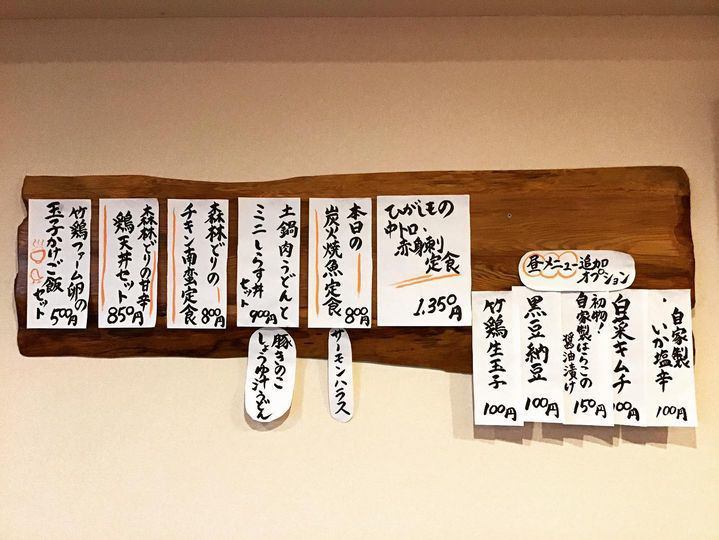 ひがしもの
中トロ・
赤身刺
定食
1.350円
本日の
炭火焼魚定食
800円
サーモンハラス
土鍋肉うどんと
ミニしらす丼
セット
900円
豚きのこ
しょうゆ汁うどん
森林どりの
チキン南蛮定食
800円
森林どりの甘辛
鶏天丼セット
850円
竹鶏ファーム卵の
玉子かけご飯
セット
500円
昼メニュー追加
オプション
自家製
いか塩辛
100円
白菜キムチ
100円
初物!
自家製はらこの
醤油漬け
150円
黒豆納豆
100円
竹鶏生玉子
100円